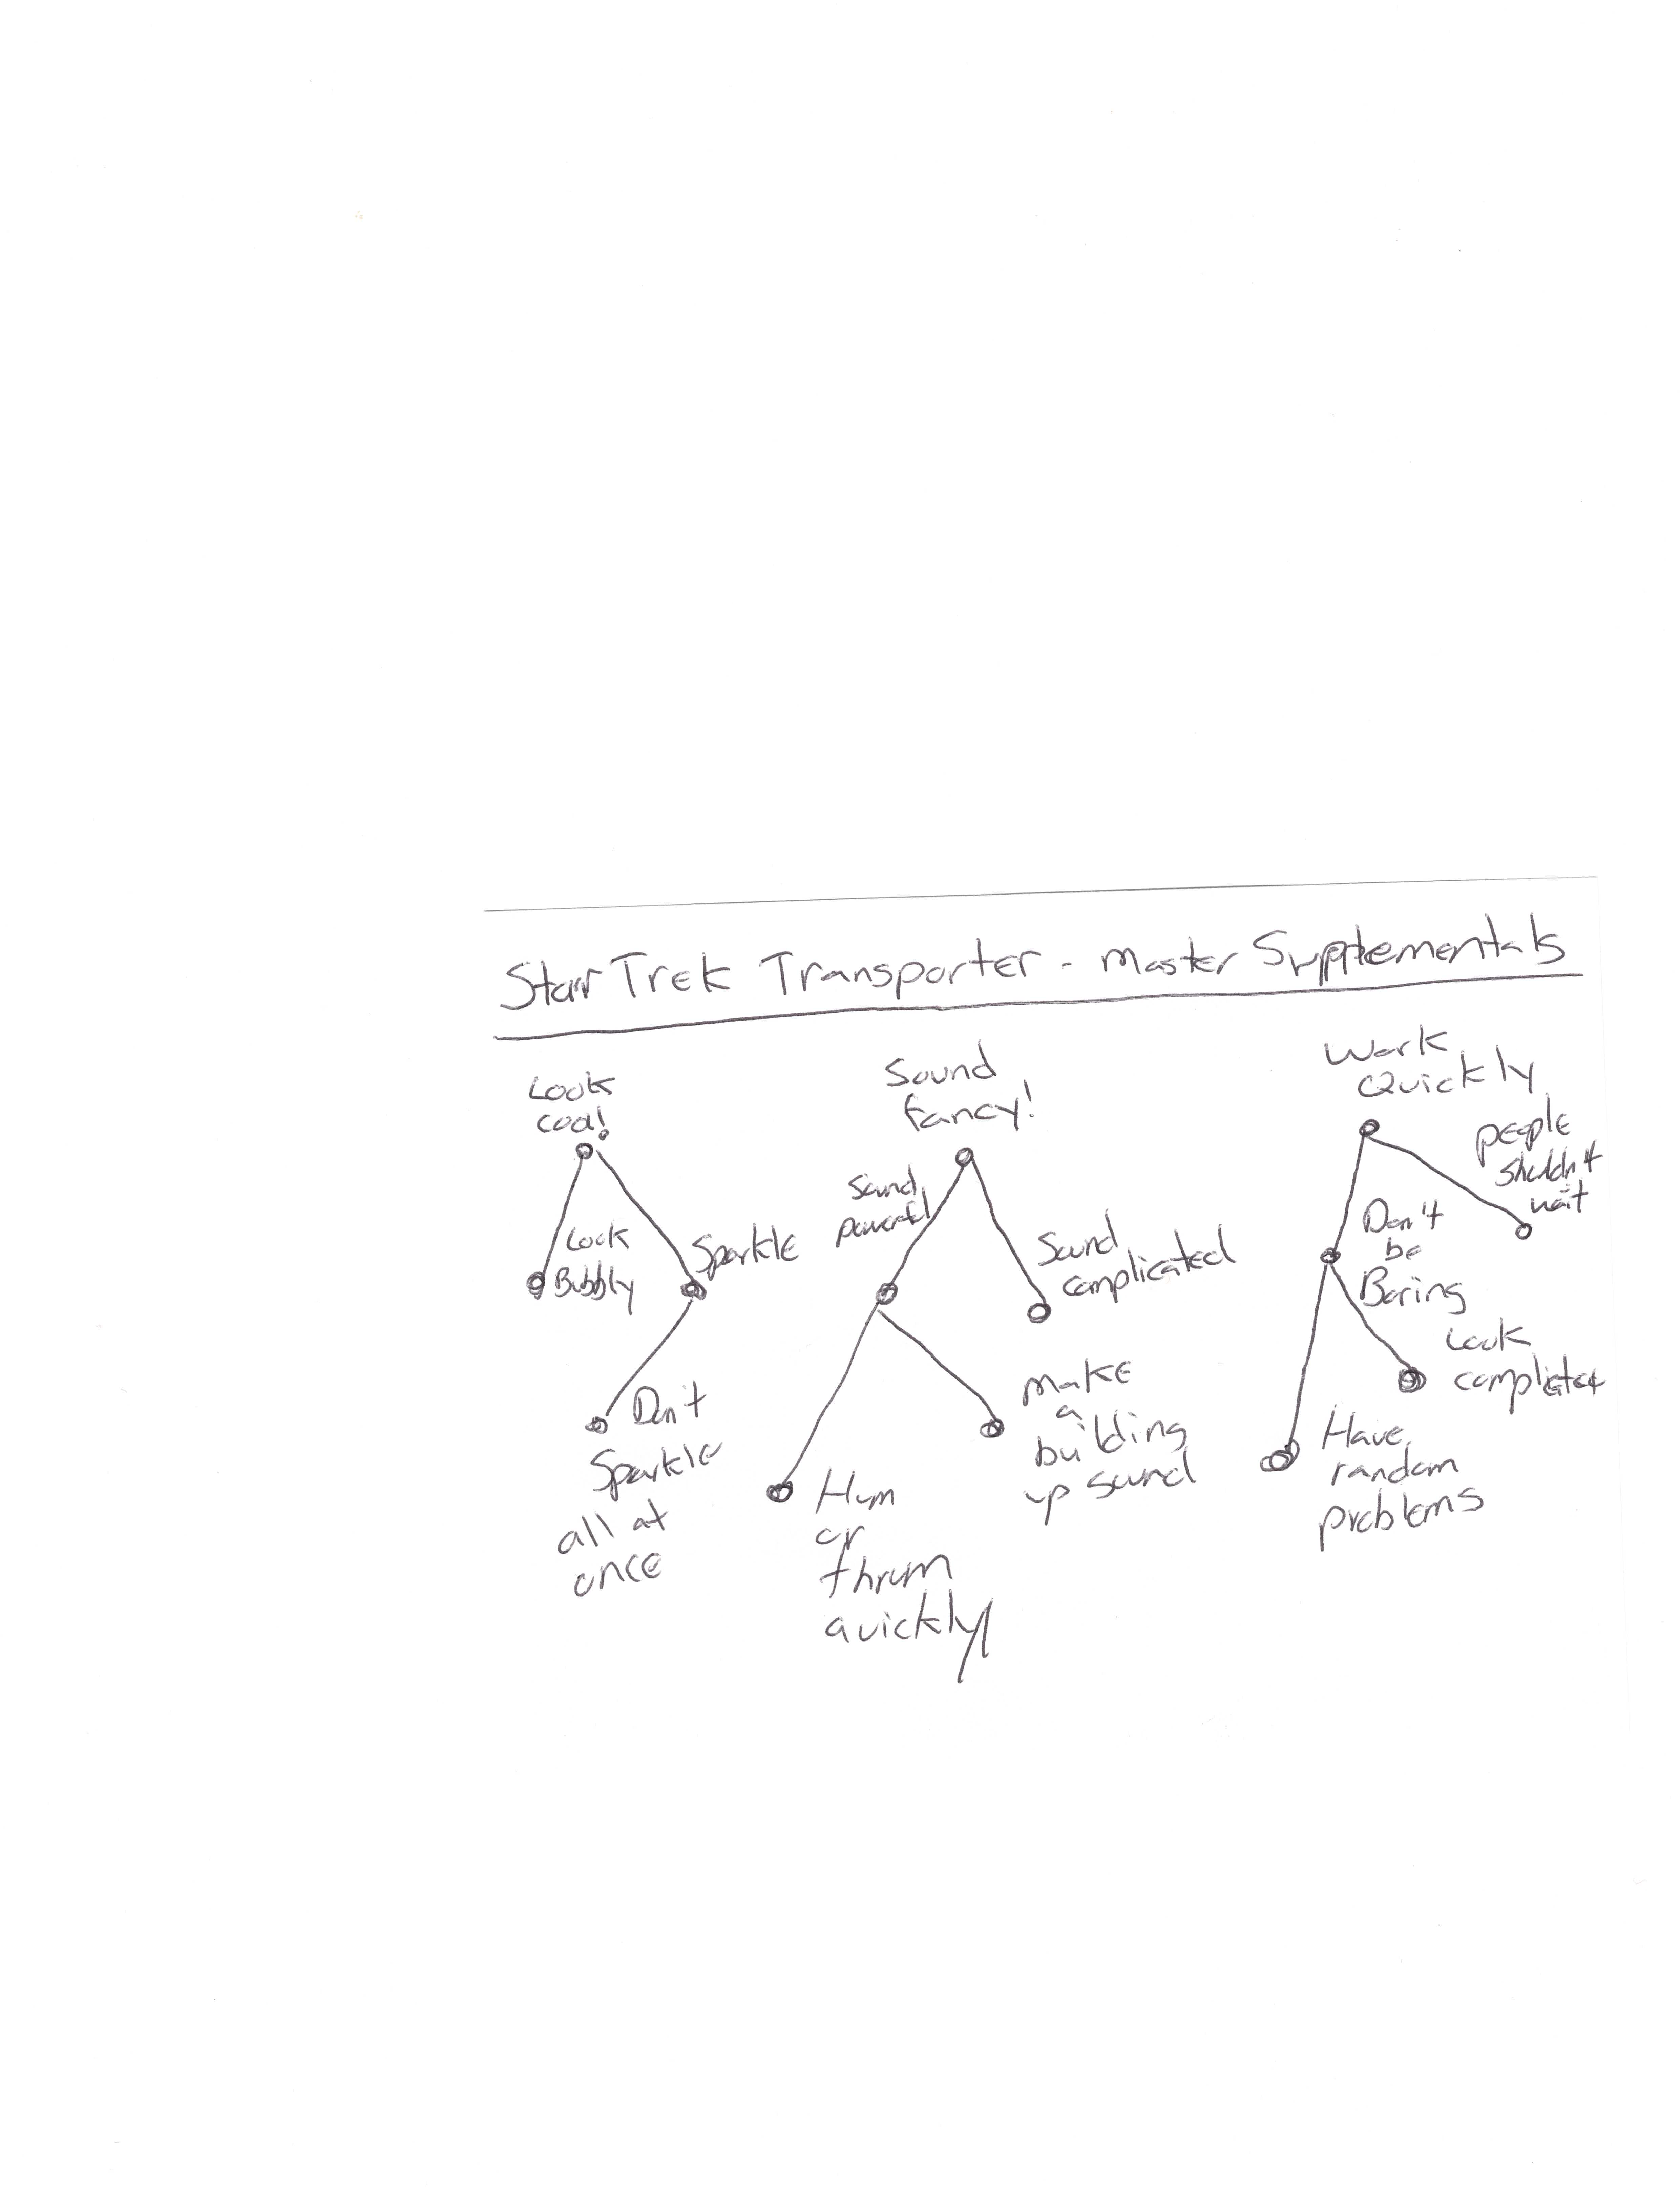 Star Trek Transporter - Master Supplementals
Look
cool!
Look
Bubbly
Sparkle
Don't
Sparkle
all at
once
Sound
fancy!
Sound
powerful
Sound
complicated
Hum
or
thrum
quickly
Make
a
building
up sound
Work
Quickly
people
shouldn't
wait
Don't
be
Boring
Look
complicated
Have
random
problems